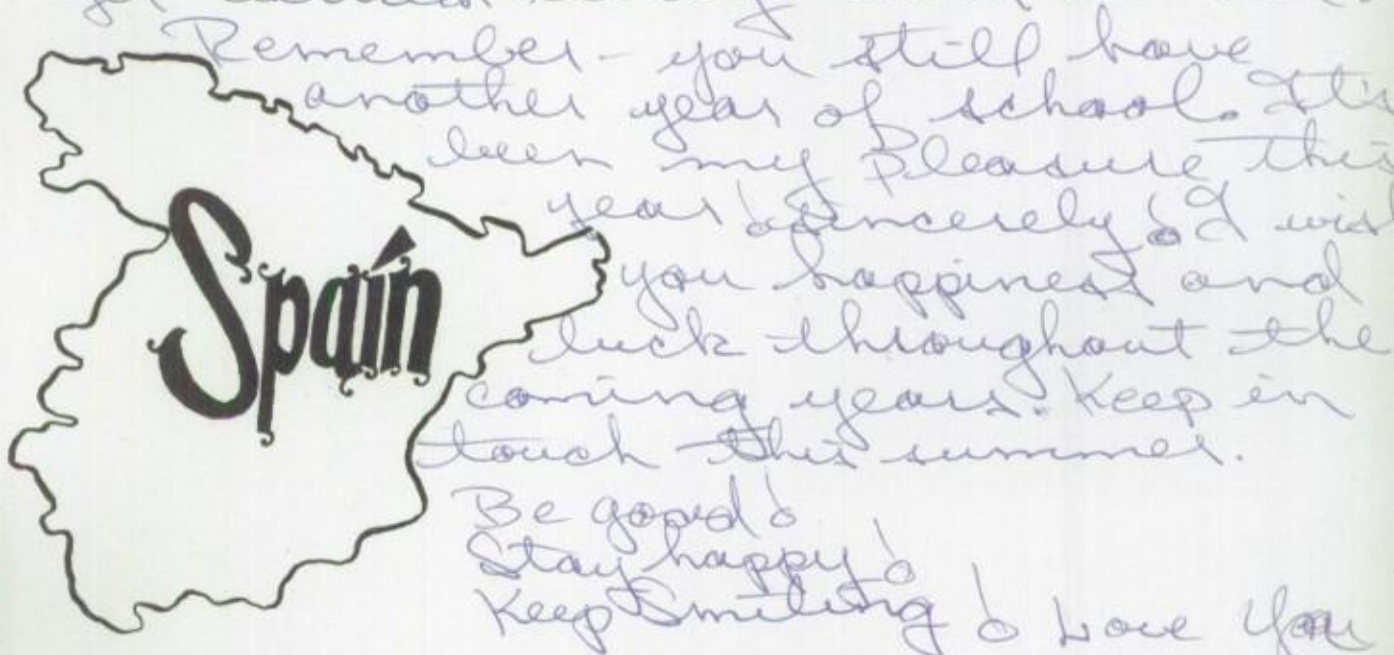 Remember - you still have
another year of school. It's
been my pleasure this
year! Sincerely! I wis
you happiness and
luck throughout the
coming years. Keep in
touch this summer.
Be good!
Stay happy!
Keep Smiling! Love You
Spain